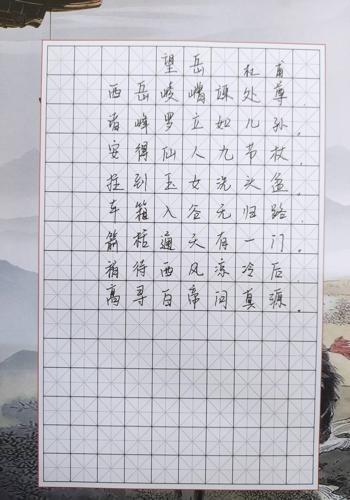 望岳 杜甫
西岳崚嶒竦处尊,
诸峰罗立如儿孙。
安得仙人九节杖,
拄到玉女洗头盆。
车箱入谷无归路,
箭栝通天有一门。
稍待西风凉冷后,
高寻百帝问真源。